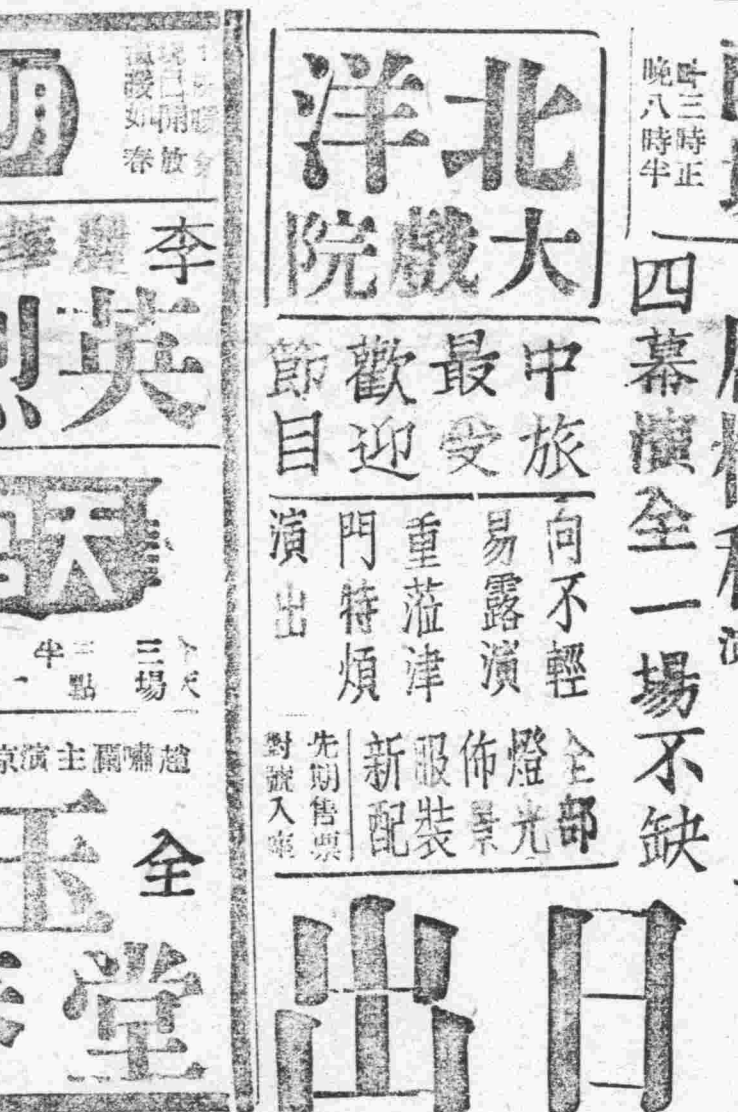 卅三時正
晚八時半
四幕演全一場不缺
北洋
大戲院
中旅
最受
歡迎
節目
向不輕
易露演
重蒞津
門特煩
演出
全部
燈光
佈景
服裝
新配
先期售票
對號入座
日出
現已開放
溫暖如春
李
英烈
天宮
三場
三點
半
趙嘯瀾主演京
全
玉堂春